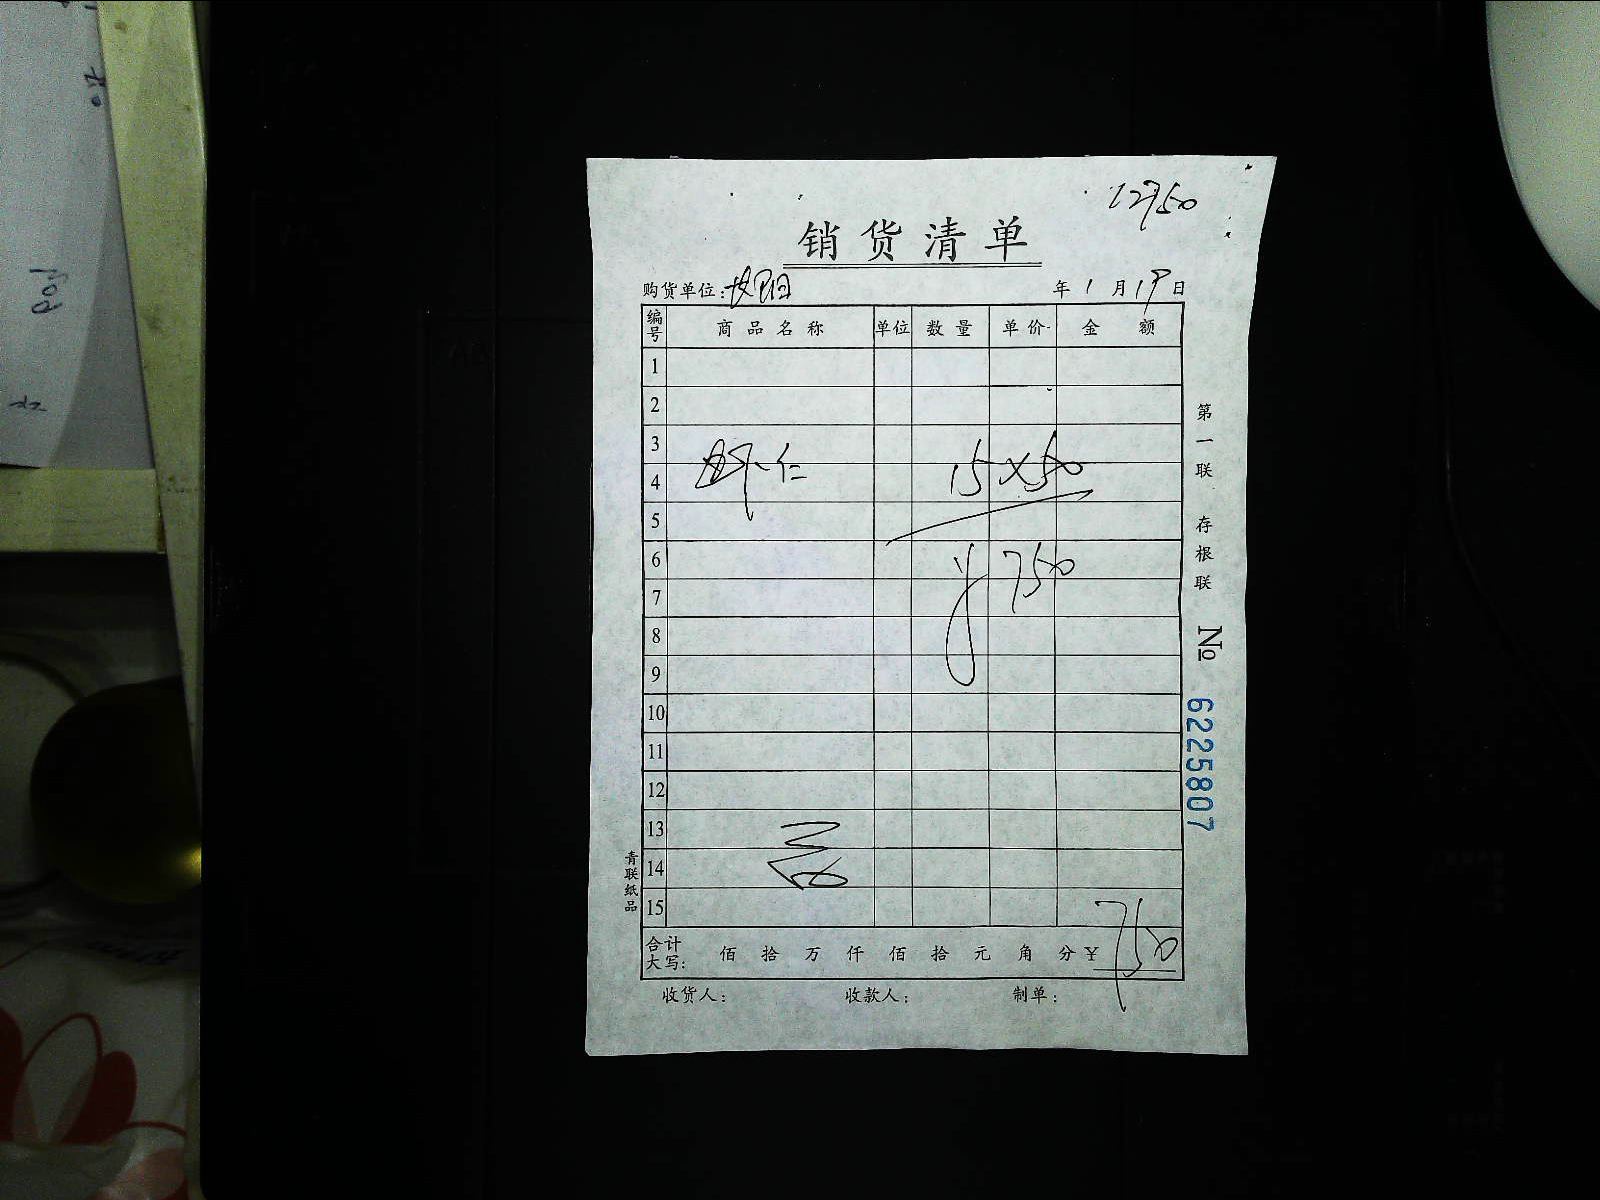 12750
销货清单
购货单位: 年 1 月 19 日
编号 商品名称 单位 数量 单价 金额
1
2
3
虾仁 15×50
4
5
6
¥750
7
8
9
10
11
12
13
14
15
合计大写: 佰 拾 万 仟 佰 拾 元 角 分 ¥ 750
收货人: 收款人: 制单:
第一联 存根联 № 6225807
青联纸品